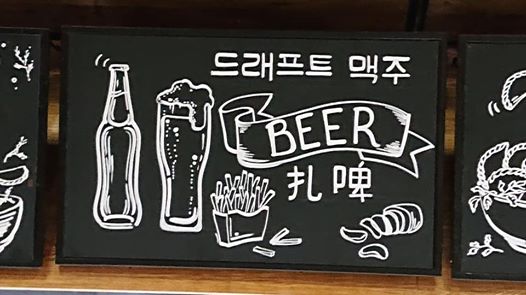 드래프트 맥주
BEER
扎啤